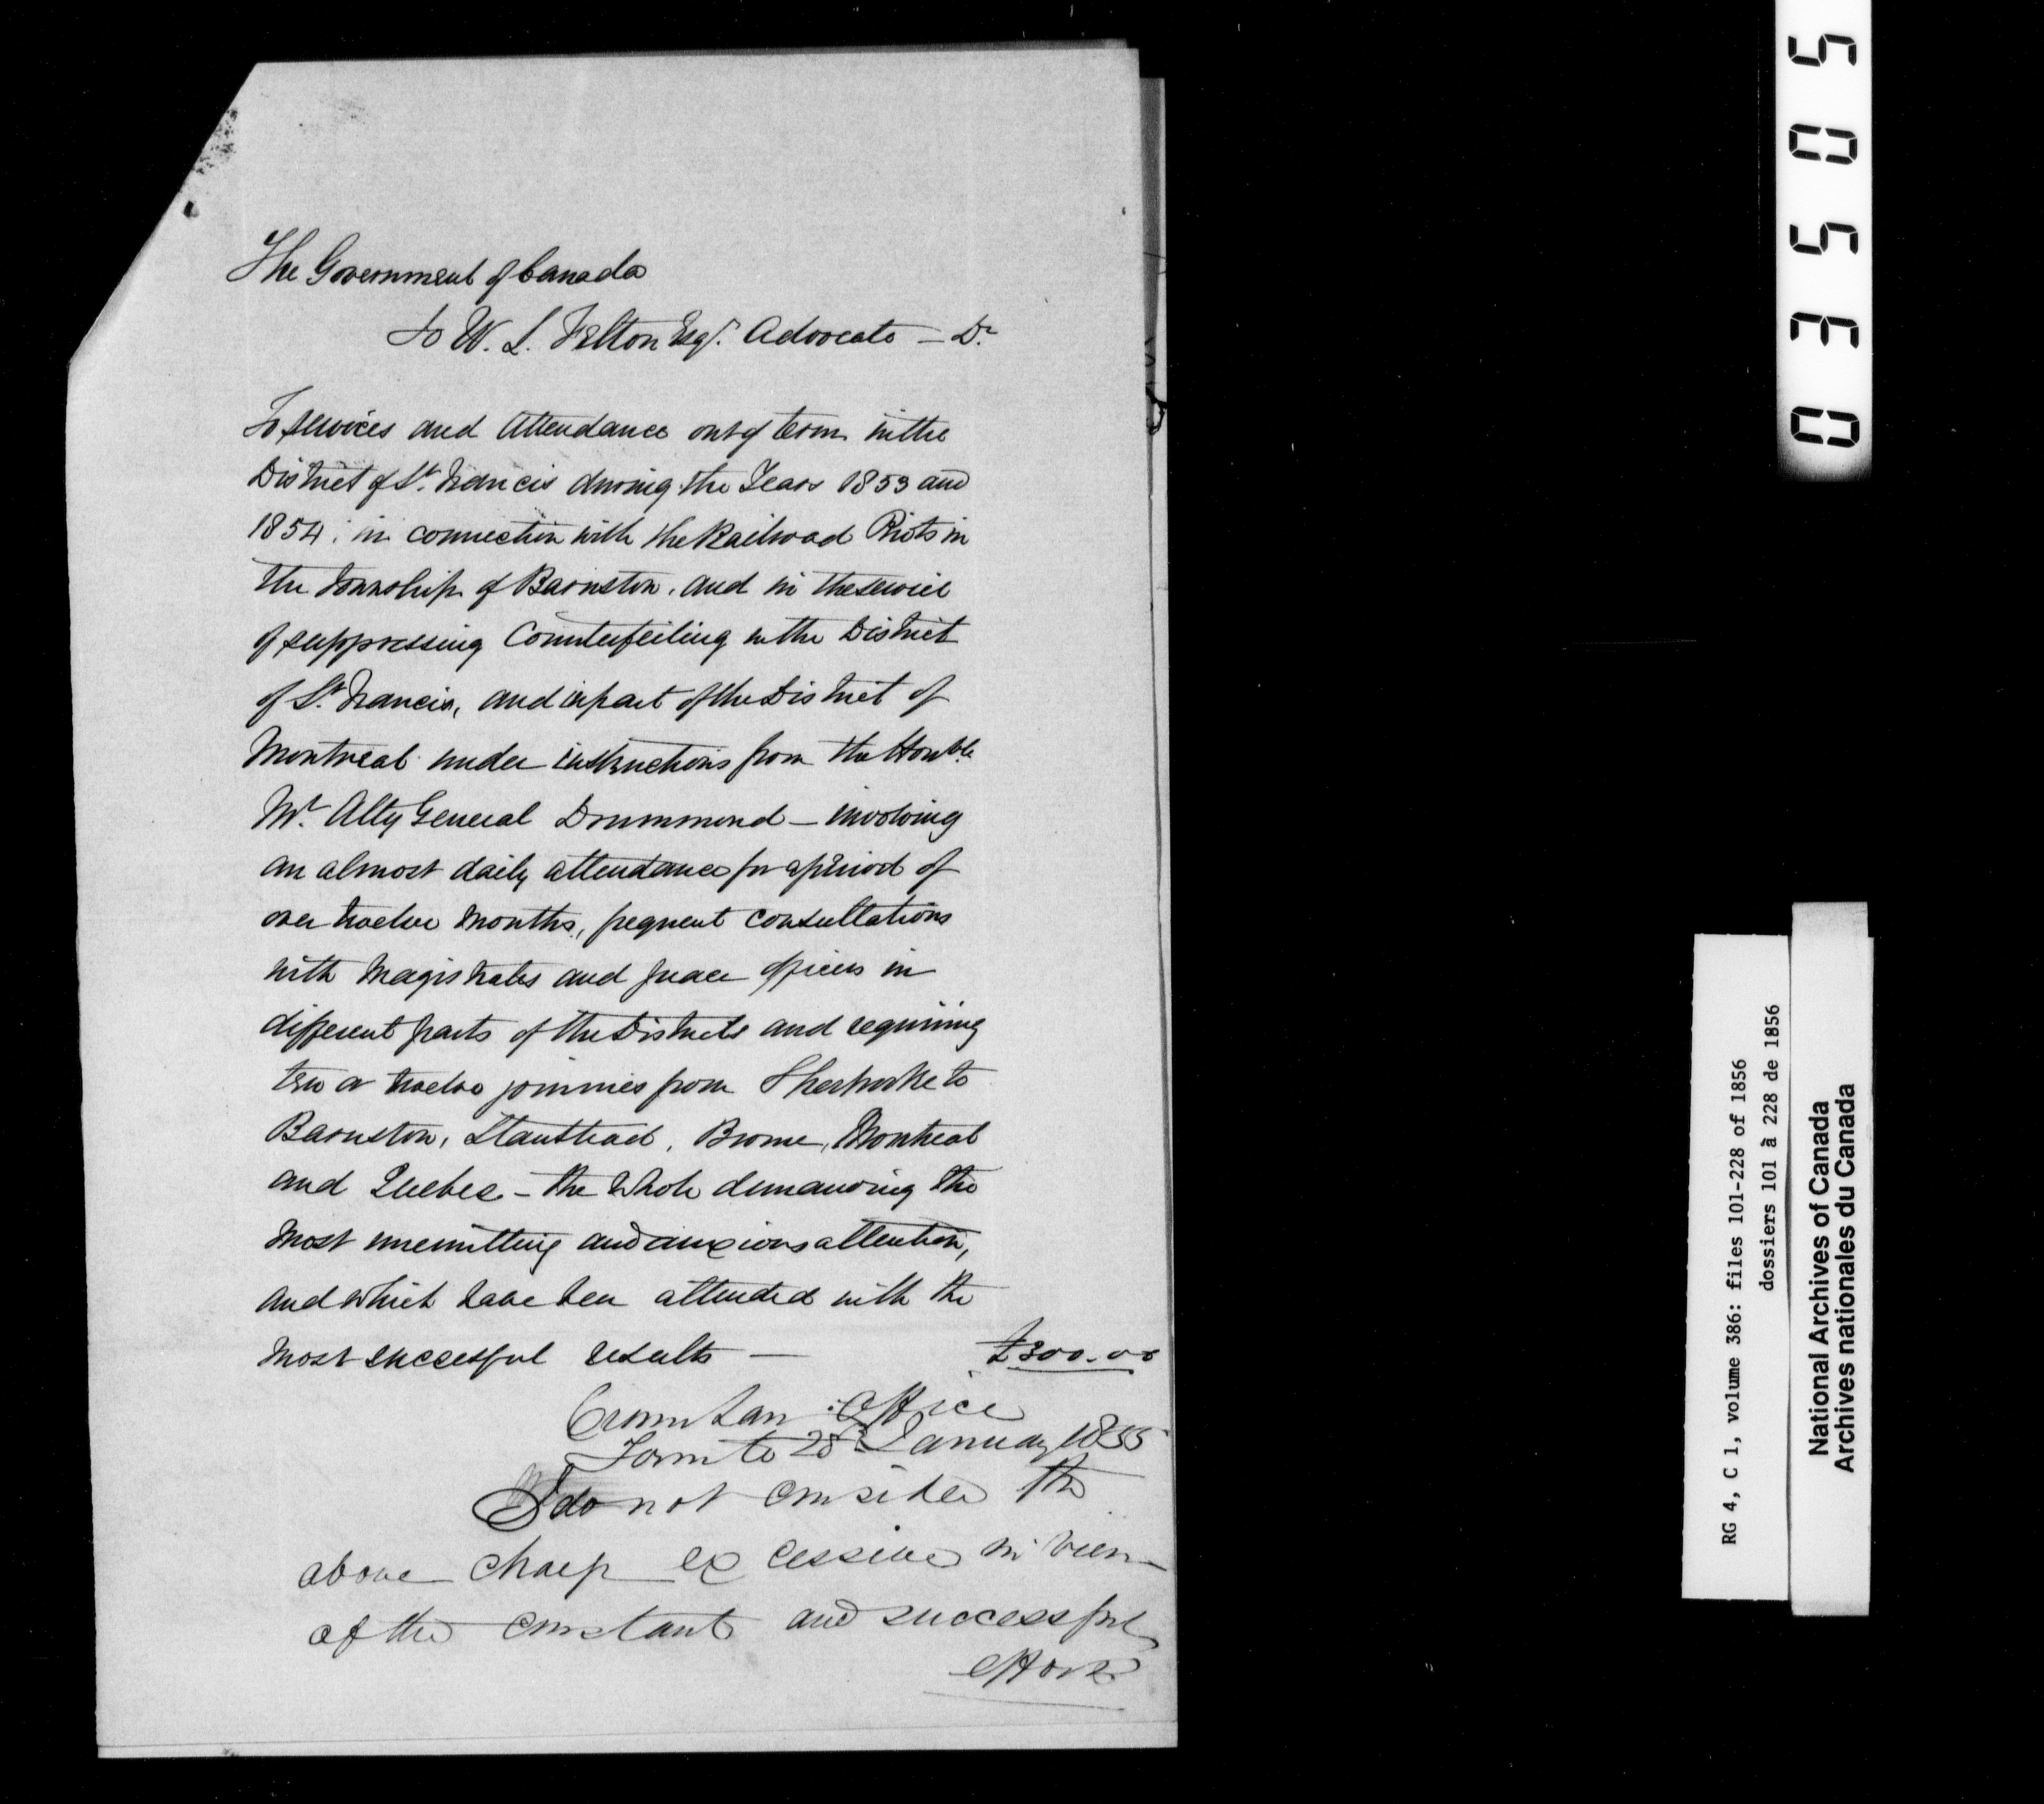 The Government of Canada
To W. L. Felton Esqr. Advocate — Dr
To services and Attendance out of term in the
District of St. Francis during the Years 1853 and
1854: in connection with the Railroad Riots in
the Township of Barnston, and in the service
of suppressing Counterfeiting in the District
of St. Francis, and in part of the District of
Montreal under instructions from the Honble
Mr. Atty General Drummond — involving
an almost daily attendance for a period of
over twelve months, frequent consultations
with Magistrates and peace officers in
different parts of the Districts and requiring
ten or twelve journies from Sherbrooke to
Barnston, Stanstead, Brome, Montreal
and Quebec — the whole demanding the
most unremitting and anxious attention,
and which have been attended with the
most successful results — £300.00
Crown Law Office
Toronto 28 January 1855
I do not consider the
above charge excessive in view
of the constant and successful
efforts
03505
RG 4, C 1, volume 386: files 101-228 of 1856
dossiers 101 à 228 de 1856
National Archives of Canada
Archives nationales du Canada